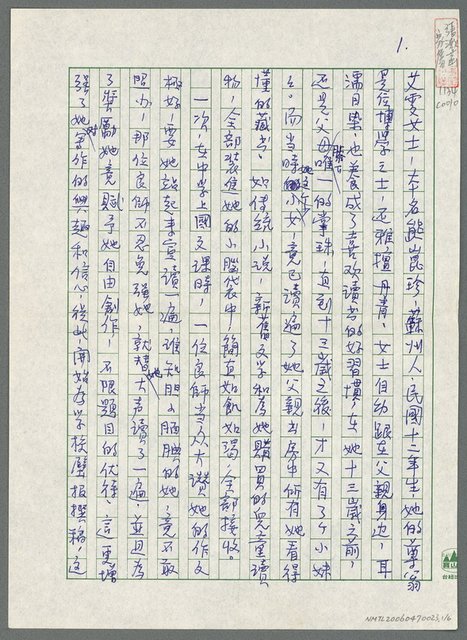 1.
艾雯女士,本名熊崑珍,蘇州人,民國十二年生,她的尊翁
是位博学之士,尤雅擅丹青,女士自幼跟在父親身边,耳
濡目染,也養成了喜欢讀书的好習慣,在她十三歲之前,
还是父母膝下唯一的掌珠,直到十三歲之後,才又有了个小妹
么。而当時她这个小女,竟已讀遍了她父親书房中所有她看得
懂的藏书。如傳統小說,新舊文学和為她購買的兒童讀
物,全部裝進她的小腦袋中,簡直如飢如渴,全部接收。
一次,在中学上國文課時,一位良師当众大讚她的作文
極好,要她站起來宣讀一遍,誰知胆小腼腆的她,竟不敢
照办,那位良師不忍免強她,就替她大声讀了一遍,並且為
了獎勵她,竟賦予她自由創作,不限題目的优待,這更增
強了她對寫作的興趣和信心,從此,開始為学校壁报撰稿,这
NMTL20060470023,1/6